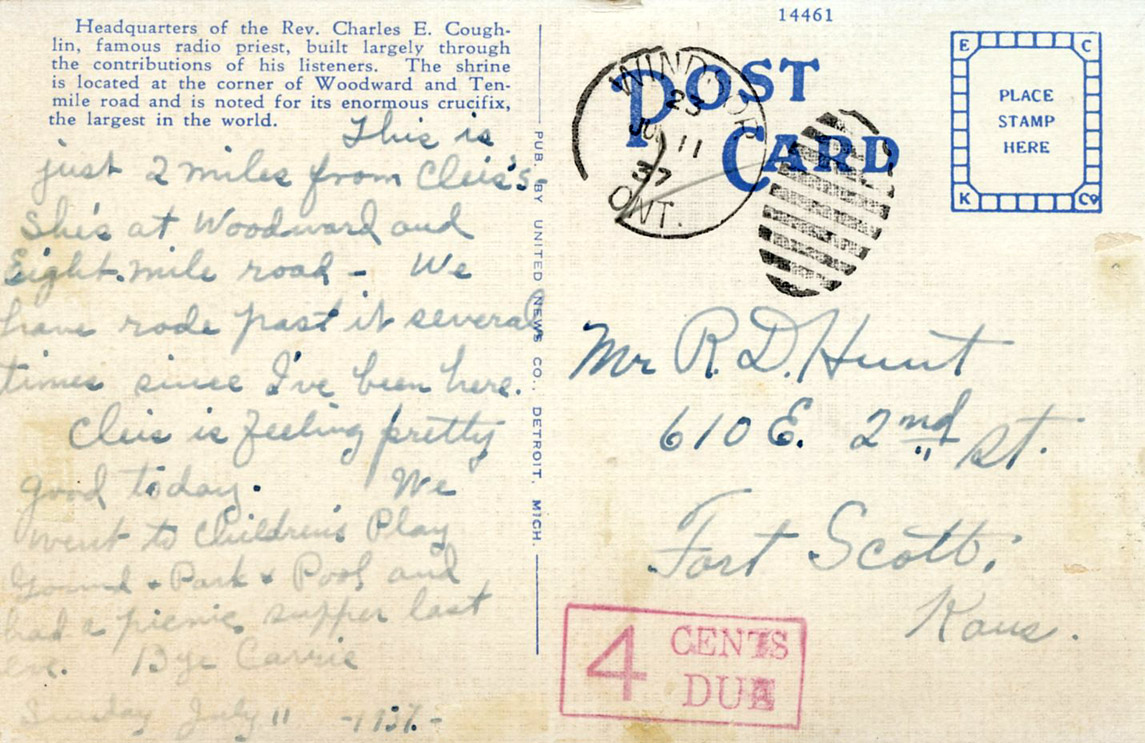 Headquarters of the Rev. Charles E. Cough-
lin, famous radio priest, built largely through
the contributions of his listeners. The shrine
is located at the corner of Woodward and Ten-
mile road and is noted for its enormous crucifix,
the largest in the world.
This is
just 2 miles from Cleis's-
She's at Woodward and
Eight-mile road - We
have rode past it several
times since I've been here.
Cleis is feeling pretty
good today. We
went to Children's Play
Ground + Park + Pool and
had a picnic supper last
eve. Bye Carrie
Sunday July 11 -1937.-
PUB. BY UNITED NEWS CO., DETROIT, MICH.
14461
POST
CARD
WINDSOR
23
JU 11
37
ONT.
E C
K Co
PLACE
STAMP
HERE
Mr R.D. Hunt
610 E. 2nd St.
Fort Scott,
Kans.
4 CENTS
DUE